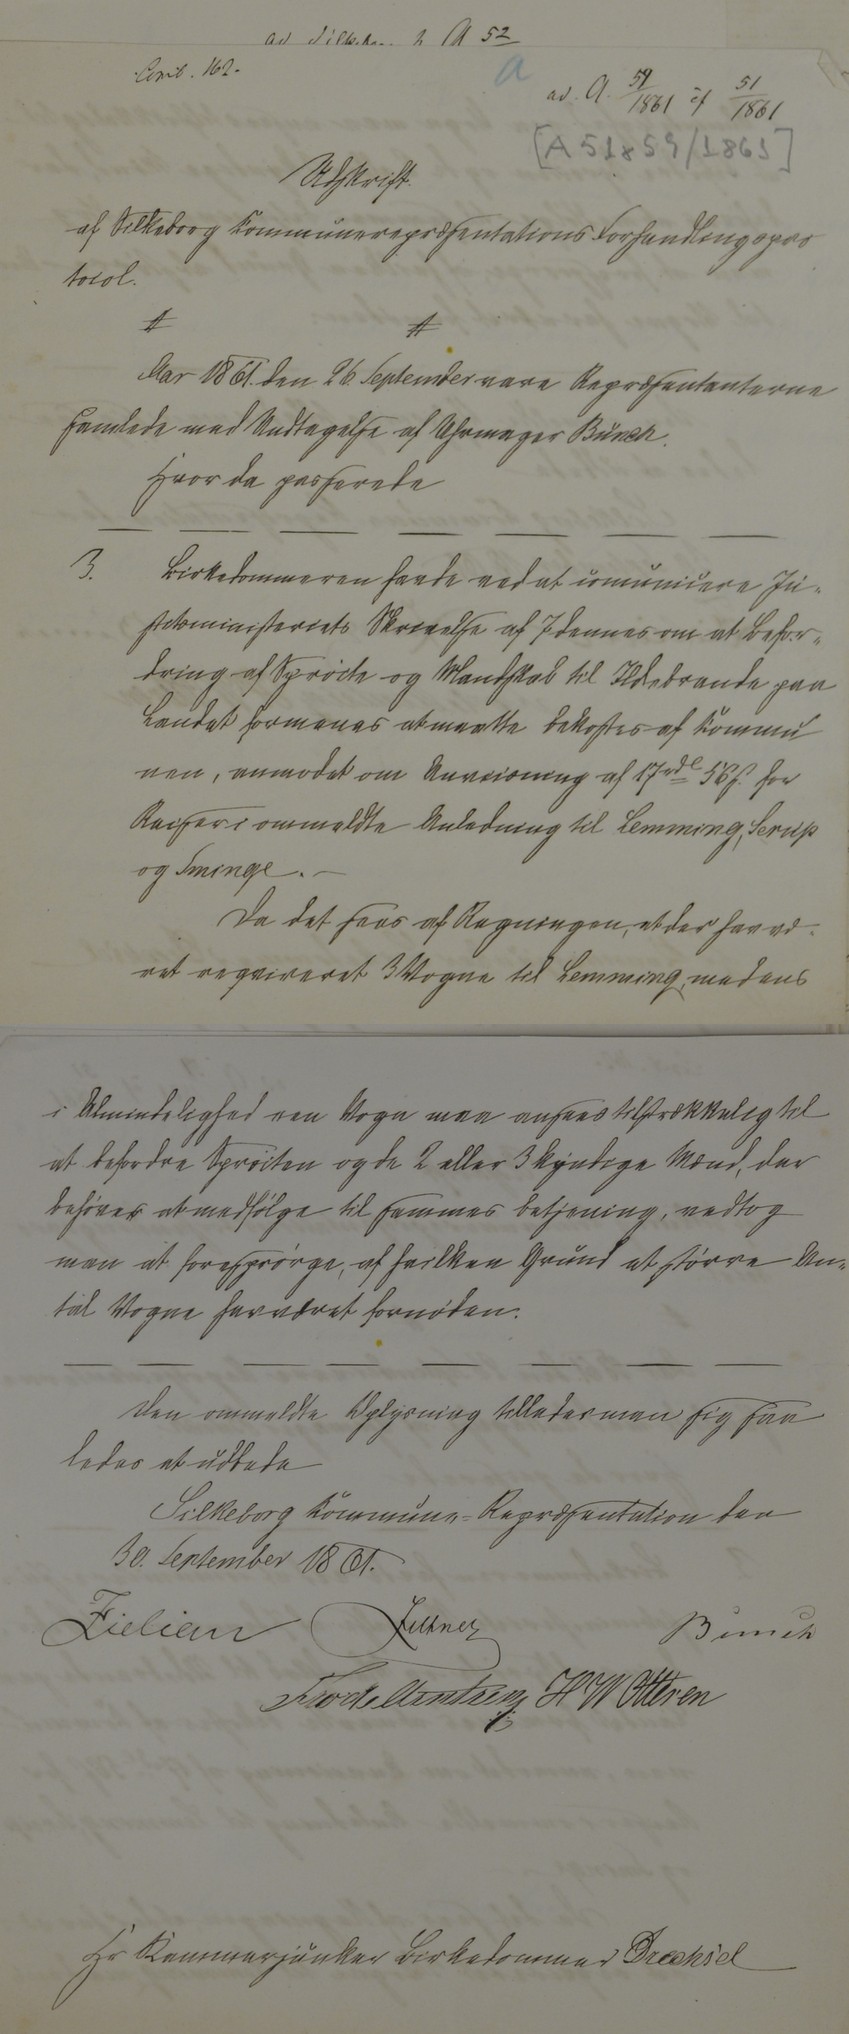 A 52
Comb. 162.
a
ad. A. 59/1861 cf 51/1861
[A 51 & 59/1861]
Udskrift
af Silkeborg Kommunerepræsentations Forhandlingspro
tocol.
Aar 1861. den 26. September vare Repræsentanterne
samlede med Undtagelse af Uhrmager Bünch.
Hvor da passerede
3. Birkedommeren havde ved at comunicere Ju-
stitsministeriets Skrivelse af 7 dennes om at Befor-
dring af Sprøite og Mandskab til Ildebrande paa
Landet formenes at maatte bekostes af Kommu
nen, anmodet om Anviisning af 17 rdl 56 s. for
Reiser i ommeldte Anledning til Lemming, Serup
og Sminge. -
Da det sees af Regningen, at der har væ-
ret reqvireret 3 Vogne til Lemming, medens
i Almindelighed een Vogn maa ansees tilstrækkelig til
at befordre Sprøiten og de 2 eller 3 kyndige Mænd, der
behøves at medfølge til sammes betjening, vedtog
man at forespørge, af hvilken Grund et større An-
tal Vogne har været fornøden.
Den ommeldte Oplysning tillader man sig saa
ledes at udbede
Silkeborg Kommune-Repræsentation den
30. September 1861.
Zielian Zeltner Bünch
H W Ottesen
Hr Kammerjunker Birkedommer Drechsel